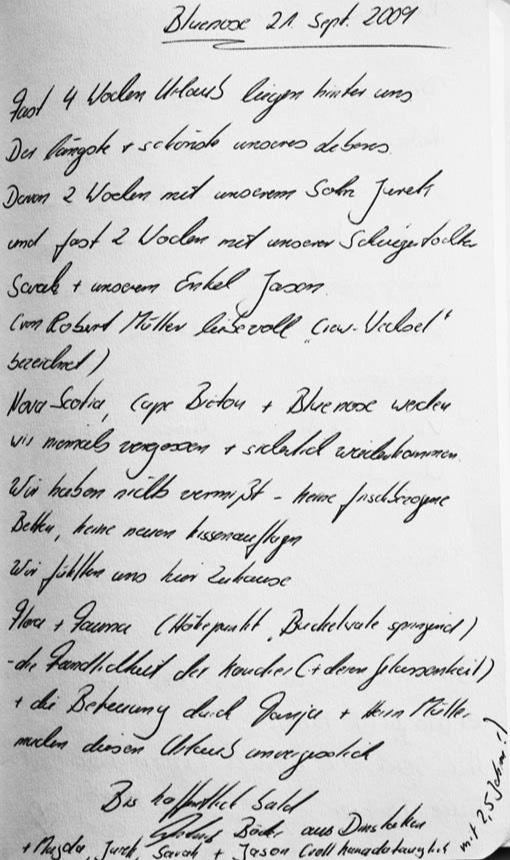 Bluenose 21. Sept. 2009
Fast 4 Wochen Urlaub liegen hinter uns
Der längste + schönste unseres Lebens.
Davon 2 Wochen mit unserem Sohn Jurek
und fast 2 Wochen mit unserer Schwiegertochter
Sarah + unserem Enkel Jason.
(von Robert Müller liebevoll "Crew-Wechsel"
bezeichnet)
Nova Scotia, Cape Breton + Bluenose werden
wir niemals vergessen + sicherlich wiederkommen.
Wir haben nichts vermißt - keine frischbezogene
Betten, keine neuen Kissenauflagen
Wir fühlten uns hier Zuhause
Flora + Fauna (Höhepunkt, Buckelwale springend)
- die Freundlichkeit der Kanadier (+ deren Gelassenheit)
+ die Betreuung durch Tanja + Herrn Müller
machen diesen Urlaub unvergesslich
Bis hoffentlich bald
aus Dinslaken
+ Magda, Jurek, Sarah + Jason (voll kanadatauglich
mit 2,5 Jahren!)